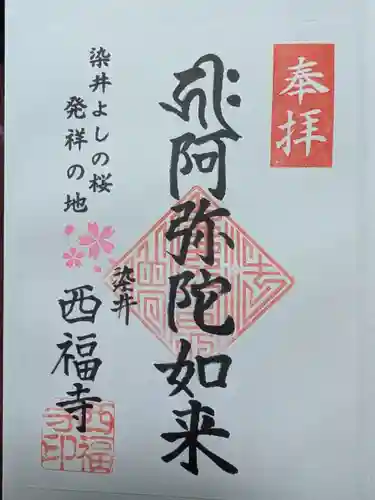 奉拝
阿弥陀如来
染井よしの桜
発祥の地
染井
西福寺
西福寺印